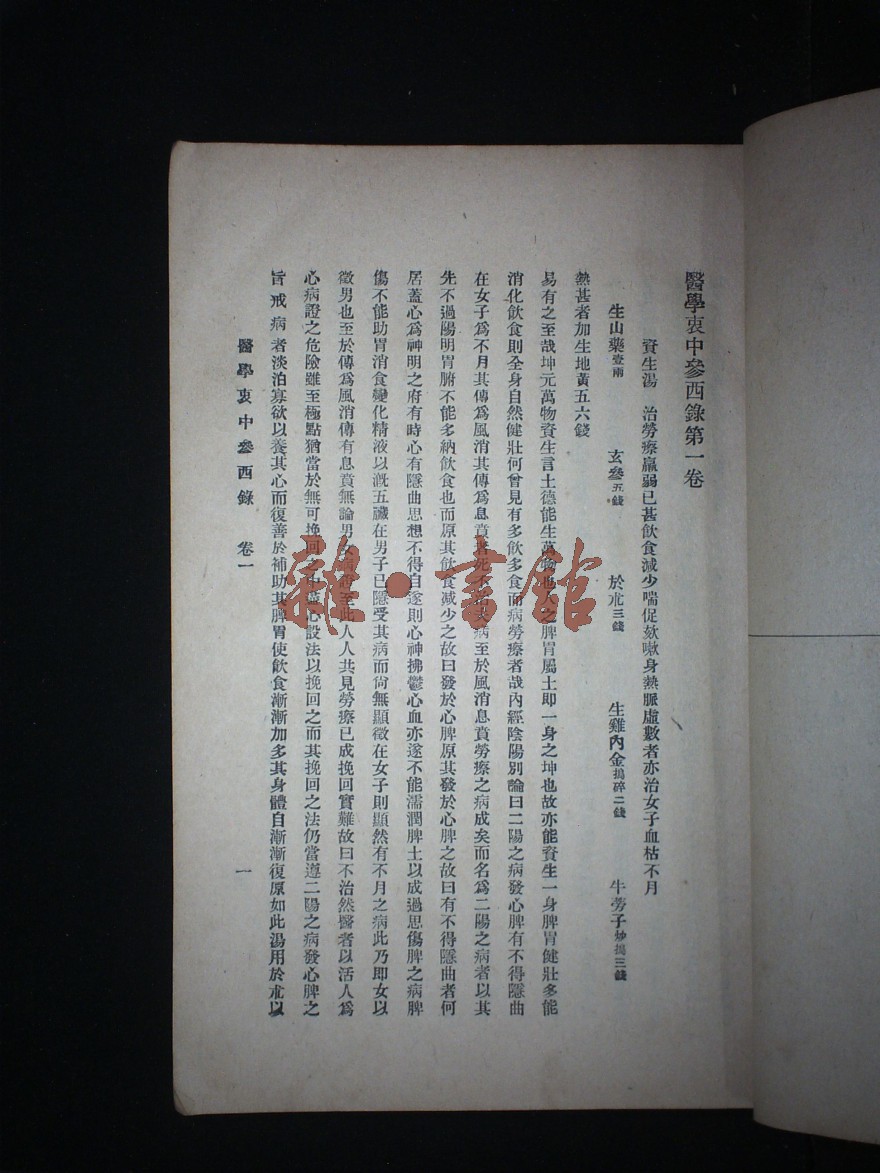 醫學衷中參西錄第一卷
資生湯　治勞瘵羸弱已甚飲食減少喘促欬嗽身熱脈虛數者亦治女子血枯不月
生山藥壹兩　玄參五錢　於朮三錢　生雞內金搗碎二錢　牛蒡子炒搗三錢
熱甚者加生地黃五六錢
易有之至哉坤元萬物資生言土德能生萬物也人之脾胃屬土即一身之坤也故亦能資生一身脾胃健壯多能
消化飲食則全身自然健壯何曾見有多飲多食而病勞瘵者哉內經陰陽別論曰二陽之病發心脾有不得隱曲
在女子為不月其傳為風消其傳為息賁者死不治夫病至於風消息賁勞瘵之病成矣而名為二陽之病者以其
先不過陽明胃腑不能多納飲食也而原其飲食減少之故曰發於心脾原其發於心脾之故曰有不得隱曲者何
居蓋心為神明之府有時心有隱曲思想不得自遂則心神拂鬱心血亦遂不能濡潤脾土以成過思傷脾之病脾
傷不能助胃消食變化精液以溉五臟在男子已隱受其病而尙無顯徵在女子則顯然有不月之病此乃即女以
徵男也至於傳為風消傳有息賁無論男女病至此人人共見勞瘵已成挽回實難故曰不治然醫者以活人為
心病證之危險雖至極點猶當於無可挽回之中盡心設法以挽回之而其挽回之法仍當遵二陽之病發心脾之
旨戒病者淡泊寡欲以養其心而復善於補助其脾胃使飲食漸漸加多其身體自漸漸復原如此湯用於朮以
醫學衷中參西錄　卷一　一
雜·書館